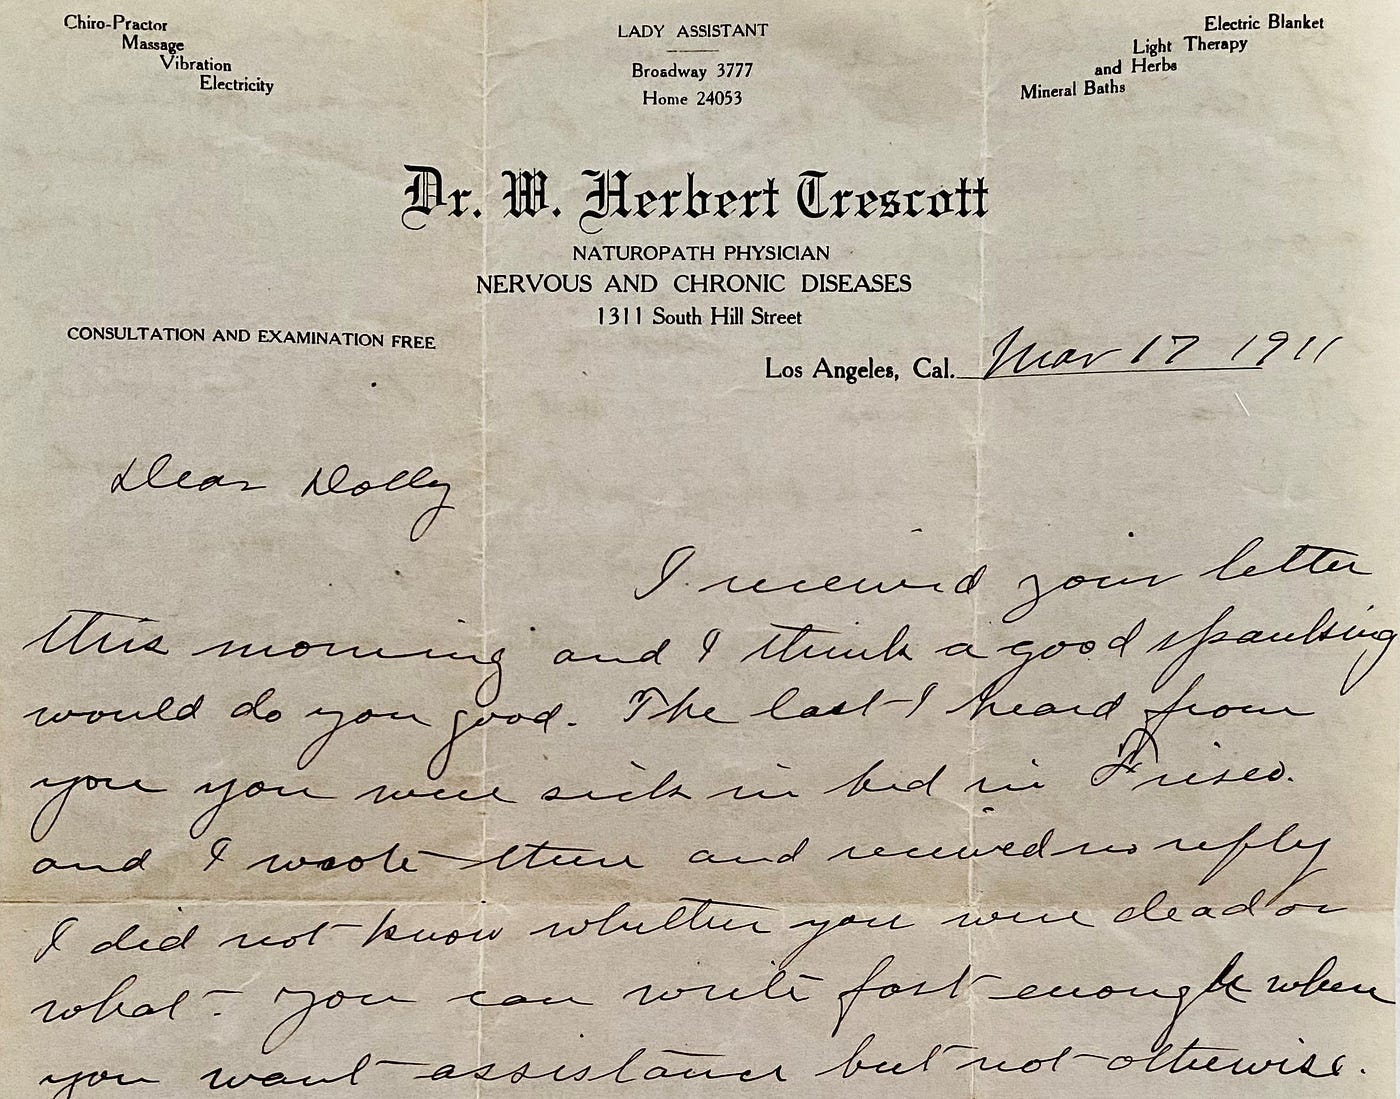 Chiro-Practor
Massage
Vibration
Electricity
LADY ASSISTANT
Broadway 3777
Home 24053
Electric Blanket
Light Therapy
and Herbs
Mineral Baths
Dr. W. Herbert Trescott
NATUROPATH PHYSICIAN
NERVOUS AND CHRONIC DISEASES
1311 South Hill Street
CONSULTATION AND EXAMINATION FREE
Los Angeles, Cal. Mar 17 1911
Dear Dolly
I received your letter
this morning and I think a good spanking
would do you good. The last I heard from
you you were sick in bed in Frisco.
and I wrote there and received no reply
I did not know whether you were dead or
what. You can write fast enough when
you want assistance but not otherwise.